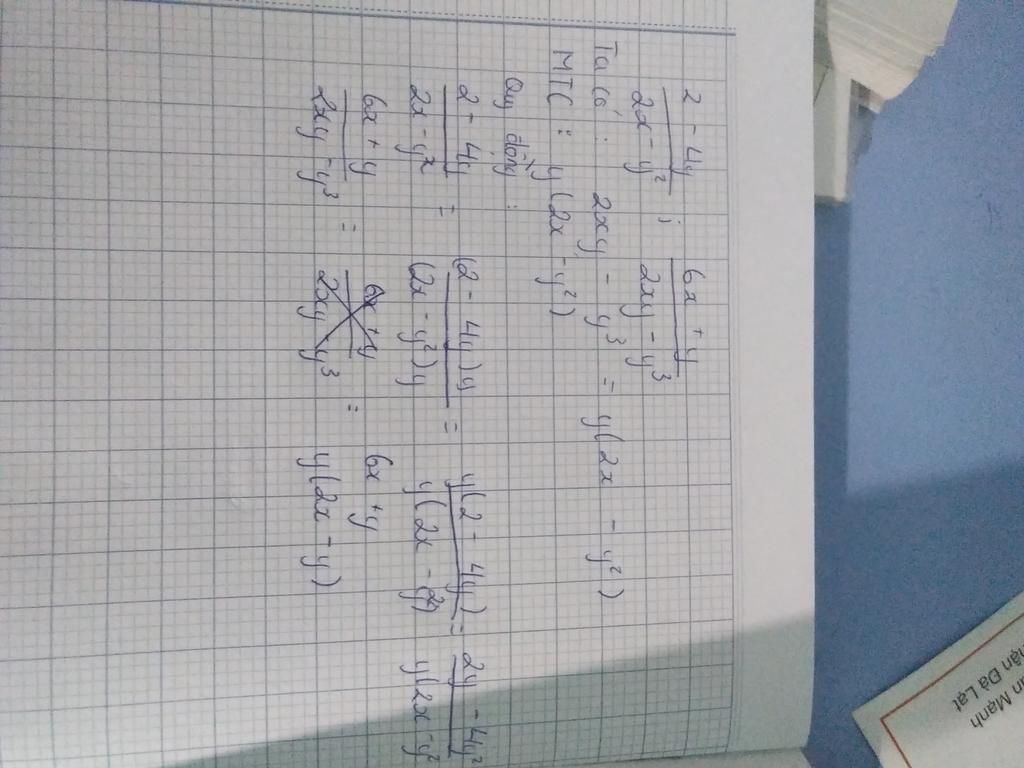 2 - 4y / 2x - y² ; 6x + y / 2xy - y³
Ta có : 2xy - y³ = y(2x - y²)
MTC : y(2x - y²)
Quy đồng :
2 - 4y / 2x - y² = (2 - 4y)y / (2x - y²)y = y(2 - 4y) / y(2x - y²) = 2y - 4y² / y(2x - y²
6x + y / 2xy - y³ = 6x + y / 2xy - y³ = 6x + y / y(2x - y)
ận Mạnh
hận Đà Lạt